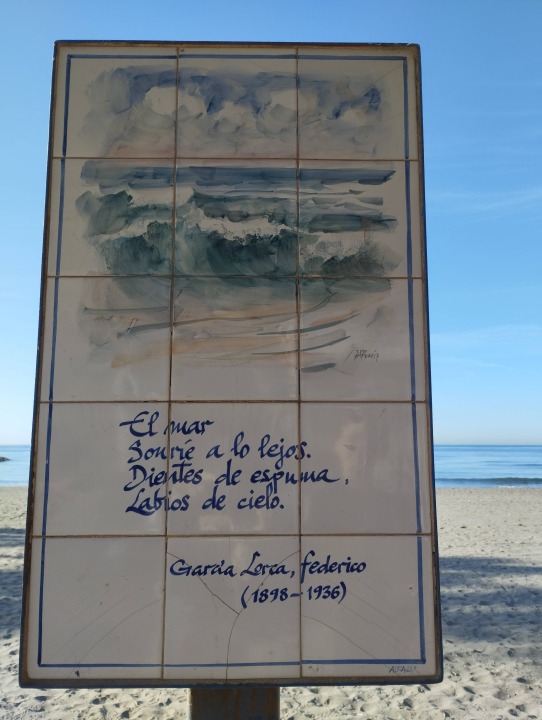 El mar
Sonríe a lo lejos.
Dientes de espuma,
Labios de cielo.
García Lorca, federico
(1898-1936)